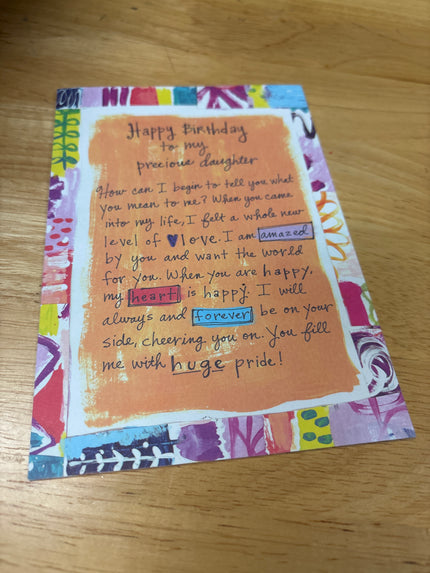 Happy Birthday
to my
precious daughter
How can I begin to tell you what
you mean to me? When you came
into my life, I felt a whole new
level of love. I am amazed
by you and want the world
for you. When you are happy,
my heart is happy. I will
always and forever be on your
side, cheering you on. You fill
me with huge pride!